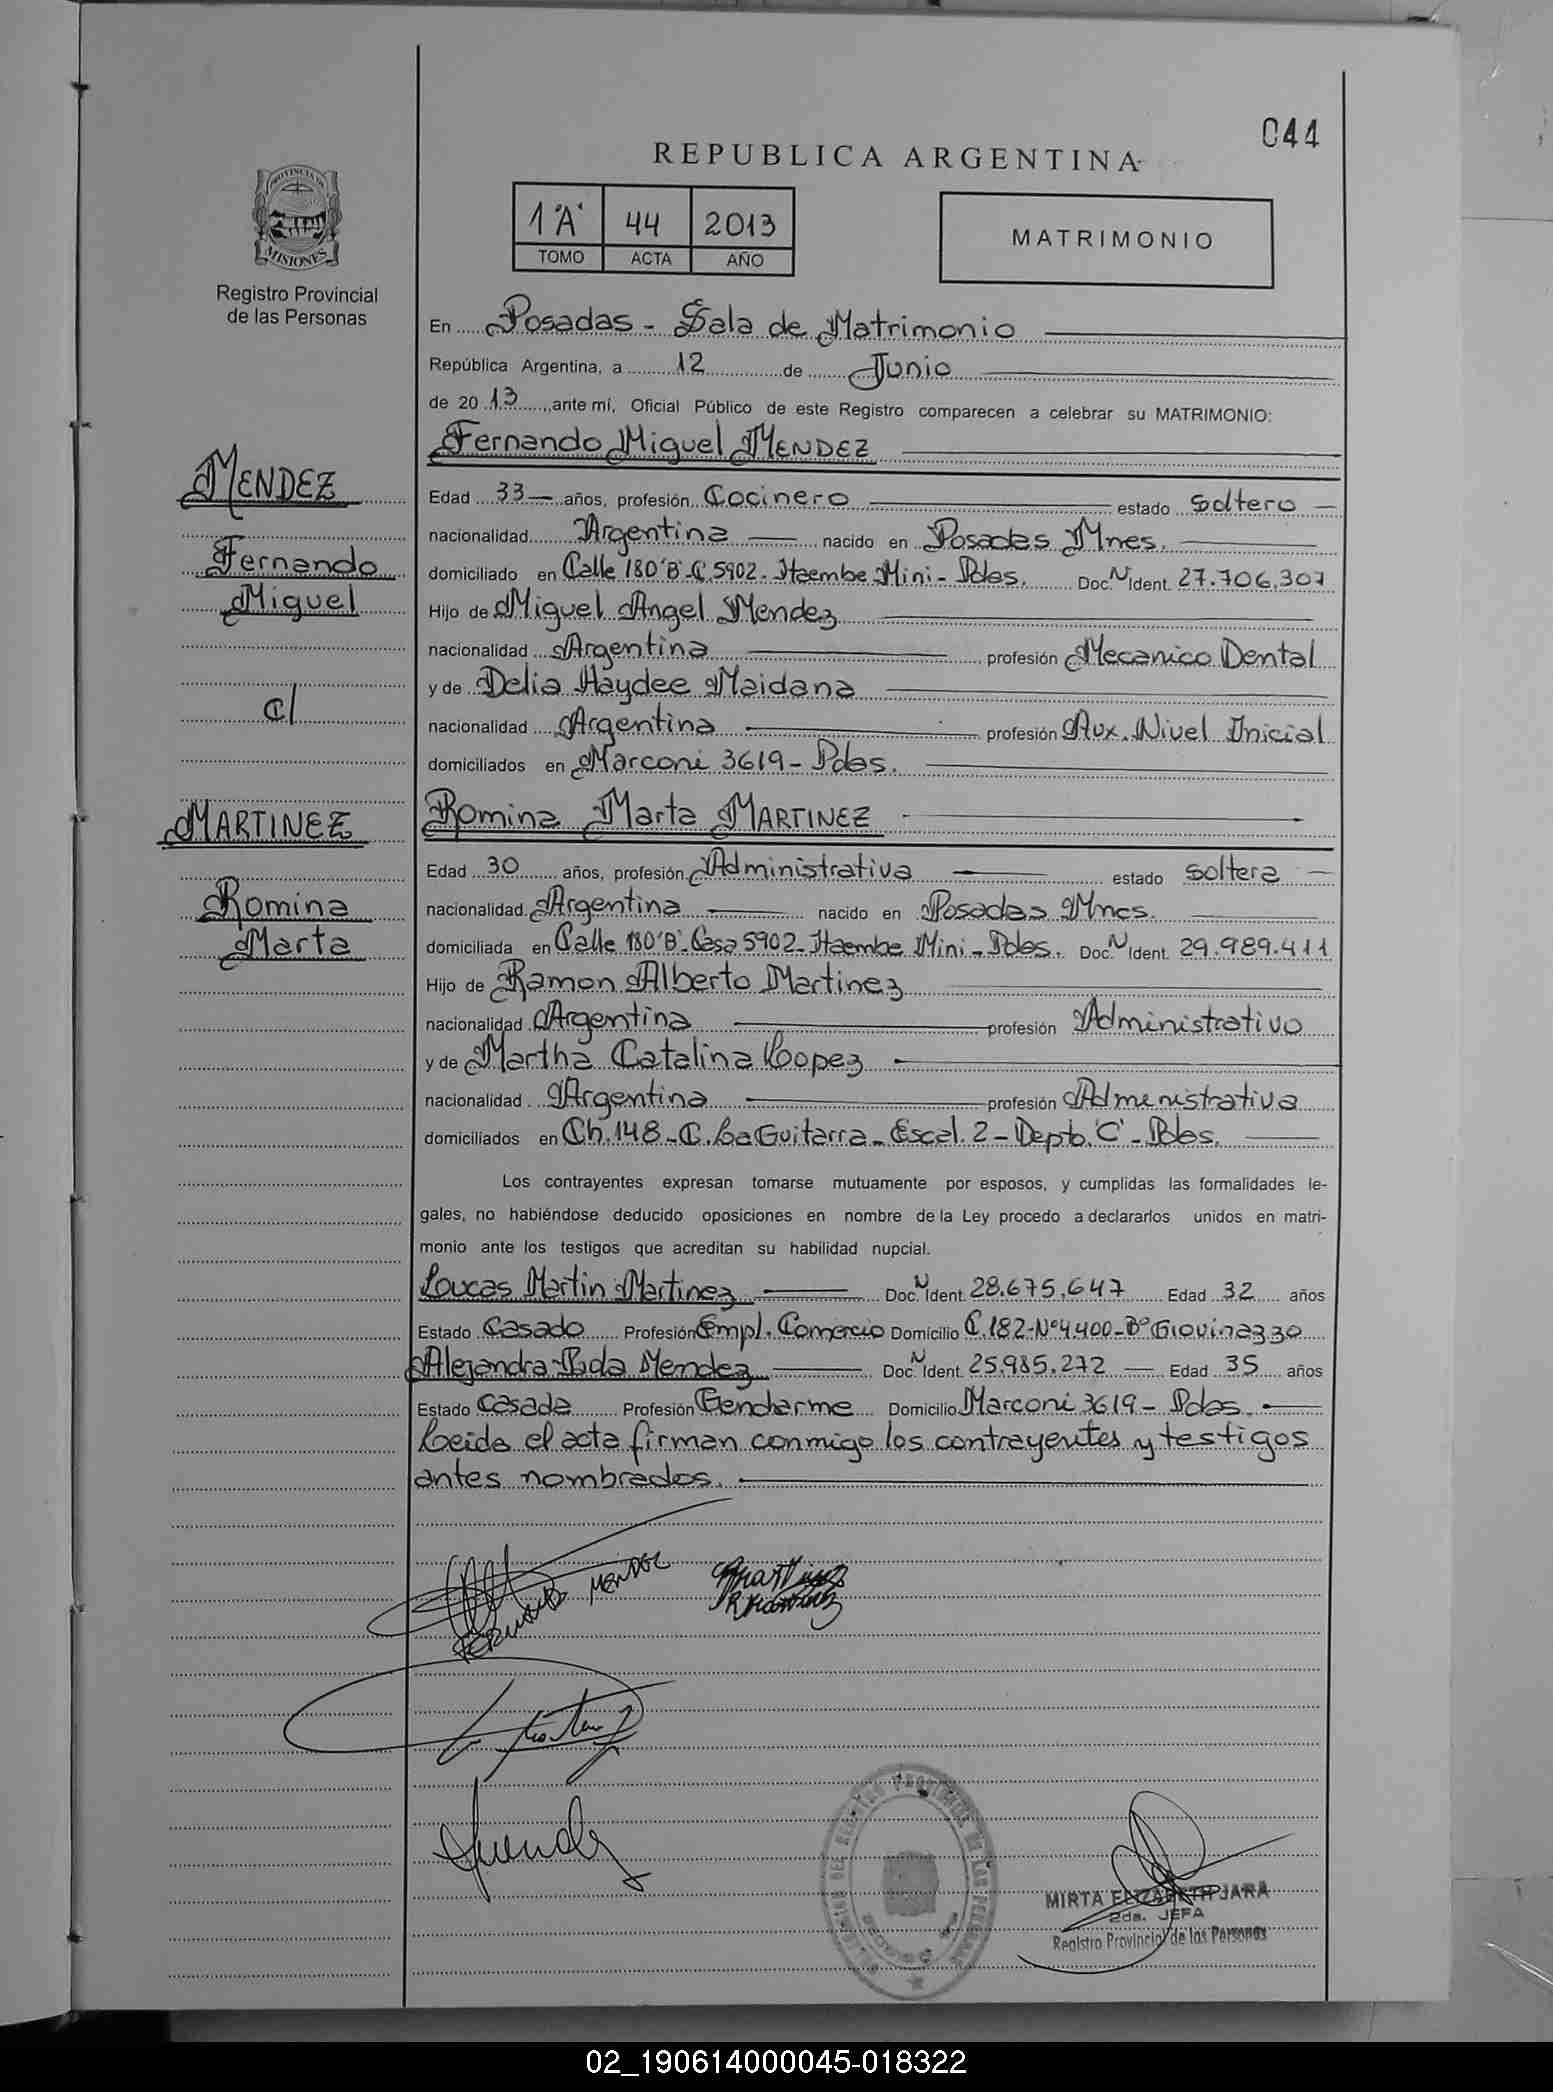 044
REPUBLICA ARGENTINA
1"A" 44 2013
TOMO ACTA AÑO
MATRIMONIO
PROVINCIA DE
MISIONES
Registro Provincial
de las Personas
En Posadas - Sala de Matrimonio
República Argentina, a 12 de Junio
de 2013, ante mí, Oficial Público de este Registro comparecen a celebrar su MATRIMONIO:
Fernando Miguel MENDEZ
MENDEZ
Fernando
Miguel
c/
MARTINEZ
Romina
Marta
Edad 33 años, profesión Cocinero estado soltero
nacionalidad Argentina nacido en Posadas Mnes.
domiciliado en Calle 180"B"-C.5902-Itaembe Mini-Pdas. Doc. N Ident. 27.706.307
Hijo de Miguel Angel Mendez
nacionalidad Argentina profesión Mecanico Dental
y de Delia Haydee Maidana
nacionalidad Argentina profesión Aux. Nivel Inicial
domiciliados en Marconi 3619-Pdas.
Romina Marta MARTINEZ
Edad 30 años, profesión Administrativa estado soltera
nacionalidad Argentina nacido en Posadas Mnes.
domiciliada en Calle 180"B"-Casa 5902-Itaembe Mini-Pdas. Doc. N Ident. 29.989.411
Hijo de Ramon Alberto Martinez
nacionalidad Argentina profesión Administrativo
y de Martha Catalina Lopez
nacionalidad Argentina profesión Administrativa
domiciliados en Ch.148-C.La Guitarra-Escal.2-Depto."C"-Pdas.
Los contrayentes expresan tomarse mutuamente por esposos, y cumplidas las formalidades le-
gales, no habiéndose deducido oposiciones en nombre de la Ley procedo a declararlos unidos en matri-
monio ante los testigos que acreditan su habilidad nupcial.
Loucas Martin Martinez Doc. N Ident. 28.675.647 Edad 32 años
Estado Casado Profesión Empl. Comercio Domicilio C.182-Nº4400-Bº Giovinazzo
Alejandra Mendez Doc. N Ident. 25.985.272 Edad 35 años
Estado Casada Profesión Gendarme Domicilio Marconi 3619-Pdas.
Leida el acta firman conmigo los contrayentes y testigos
antes nombrados.
FERNANDO MENDEZ
R Martinez
MIRTA ELIZABETH JARA
2da. JEFA
Registro Provincial de las Personas
02_190614000045-018322